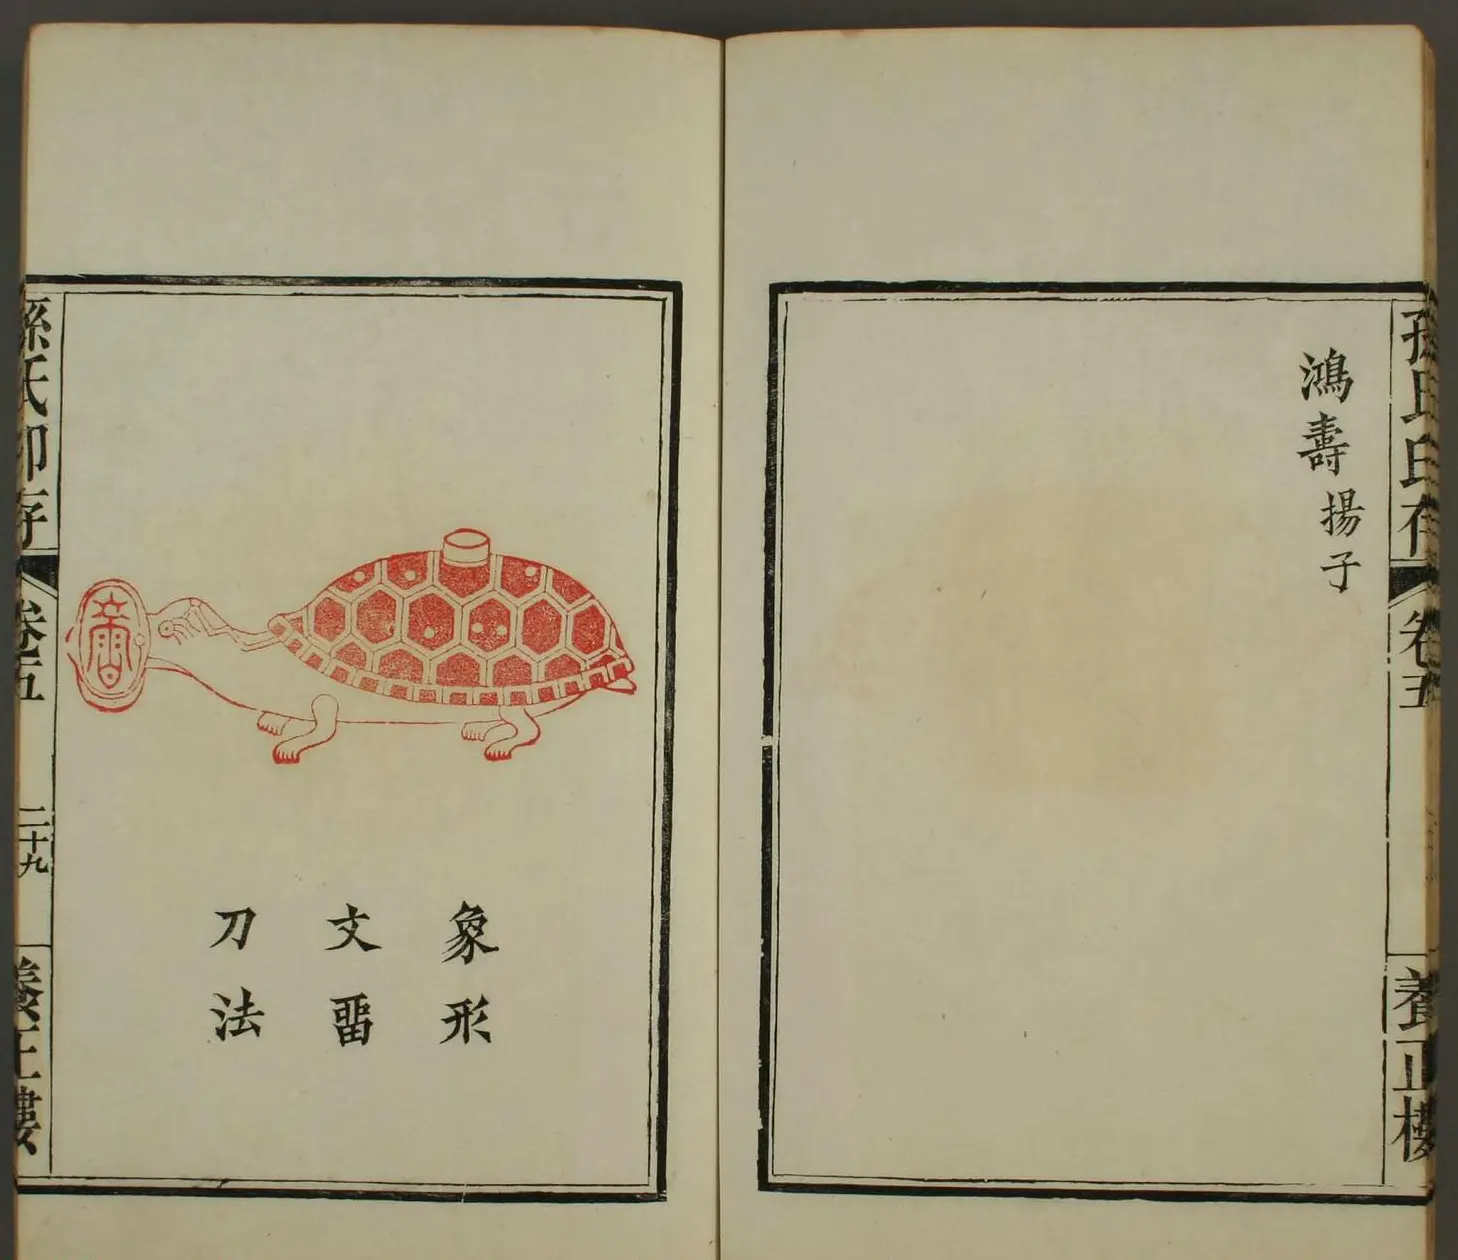 孫氏印存
卷五
養正樓
鴻壽 揚子
象形
文畱
刀法
孫氏印存
卷五
二十九
養正樓